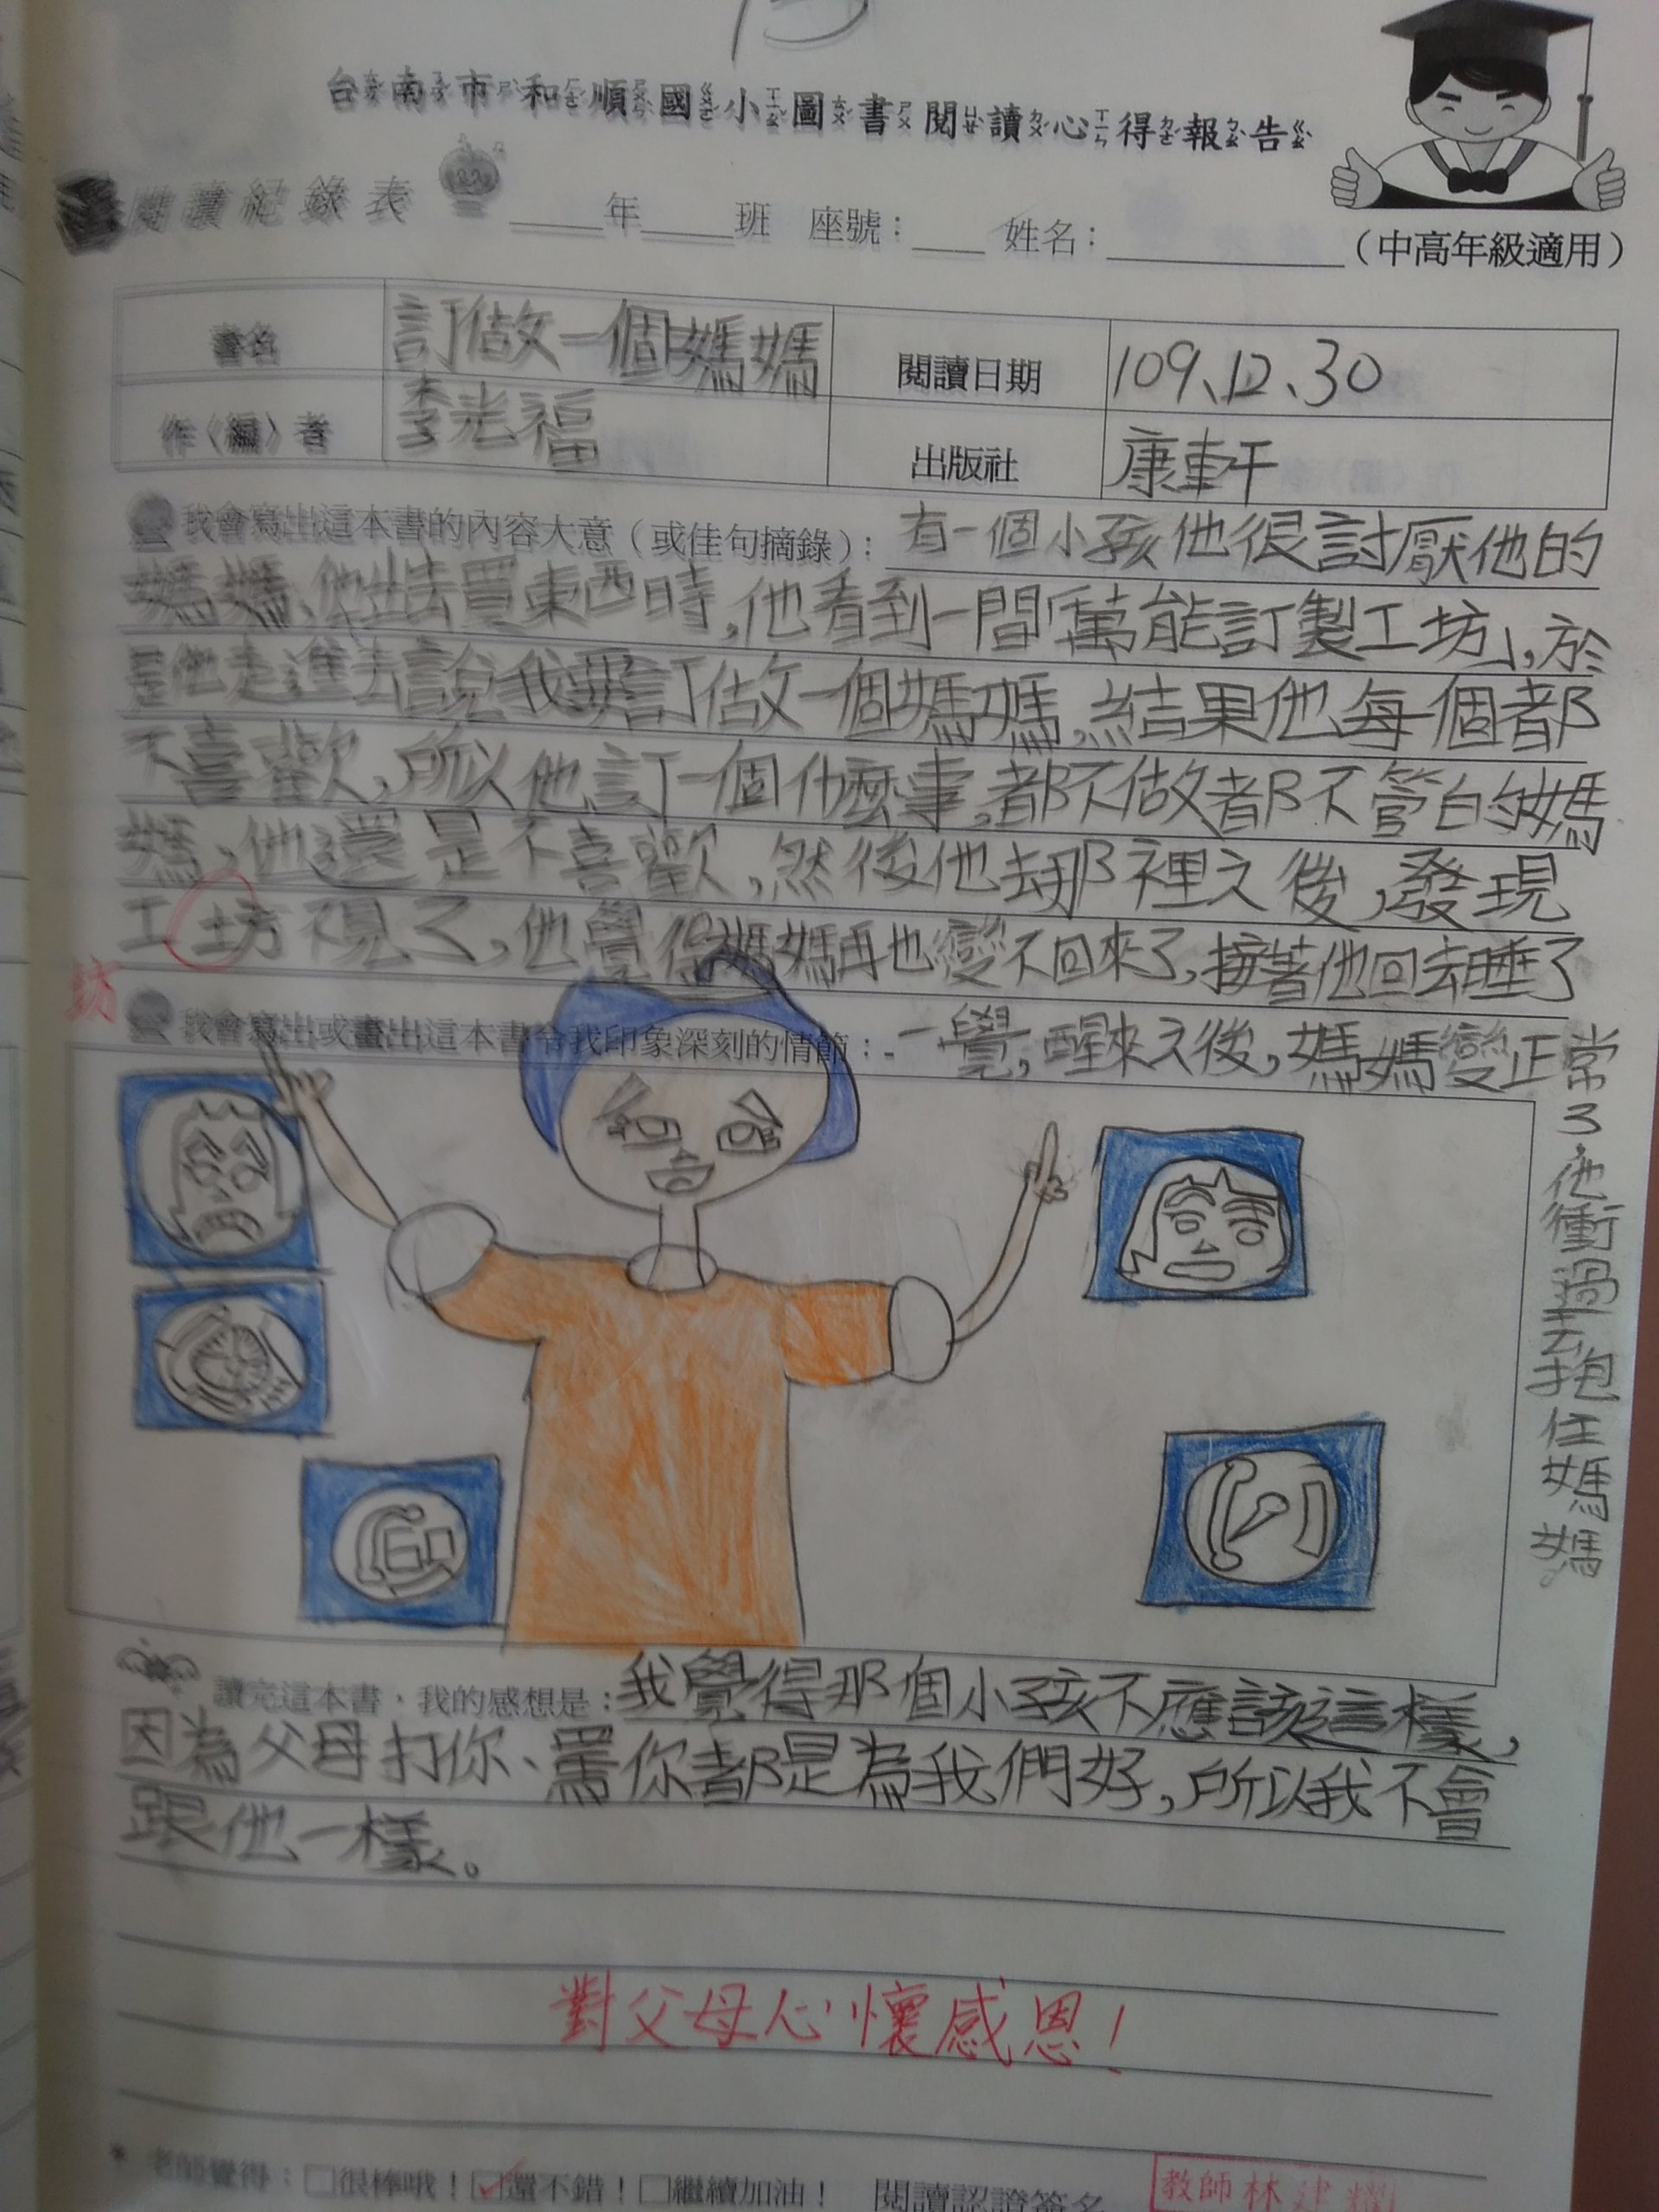 13
台南市和順國小圖書閱讀心得報告
閱讀紀錄表
____年____班 座號：___ 姓名：__________（中高年級適用）
書名 訂做一個媽媽 閱讀日期 109、12、30
作〈編〉者 李光福 出版社 康軒
我會寫出這本書的內容大意（或佳句摘錄）：有一個小孩他很討厭他的
媽媽、他出去買東西時,他看到一間「萬能訂製工坊」,於
是他走進去說我要訂做一個媽媽,結果他每個都
不喜歡,所以他訂一個什麼事,都不做都不管白的媽
媽,他還是不喜歡,然後他去那裡之後,發現
工坊不見了,他覺得媽媽再也變不回來了,接著他回去睡了
坊
我會寫出或畫出這本書令我印象深刻的情節：一覺,醒來之後,媽媽變正常
了,他衝過去抱住媽媽。
讀完這本書，我的感想是：我覺得那個小孩不應該這樣,
因為父母打你、罵你都是為我們好,所以我不會
跟他一樣。
對父母心懷感恩！
* 老師覺得：□很棒哦！☑還不錯！□繼續加油！ 閱讀認證簽名
教師林建